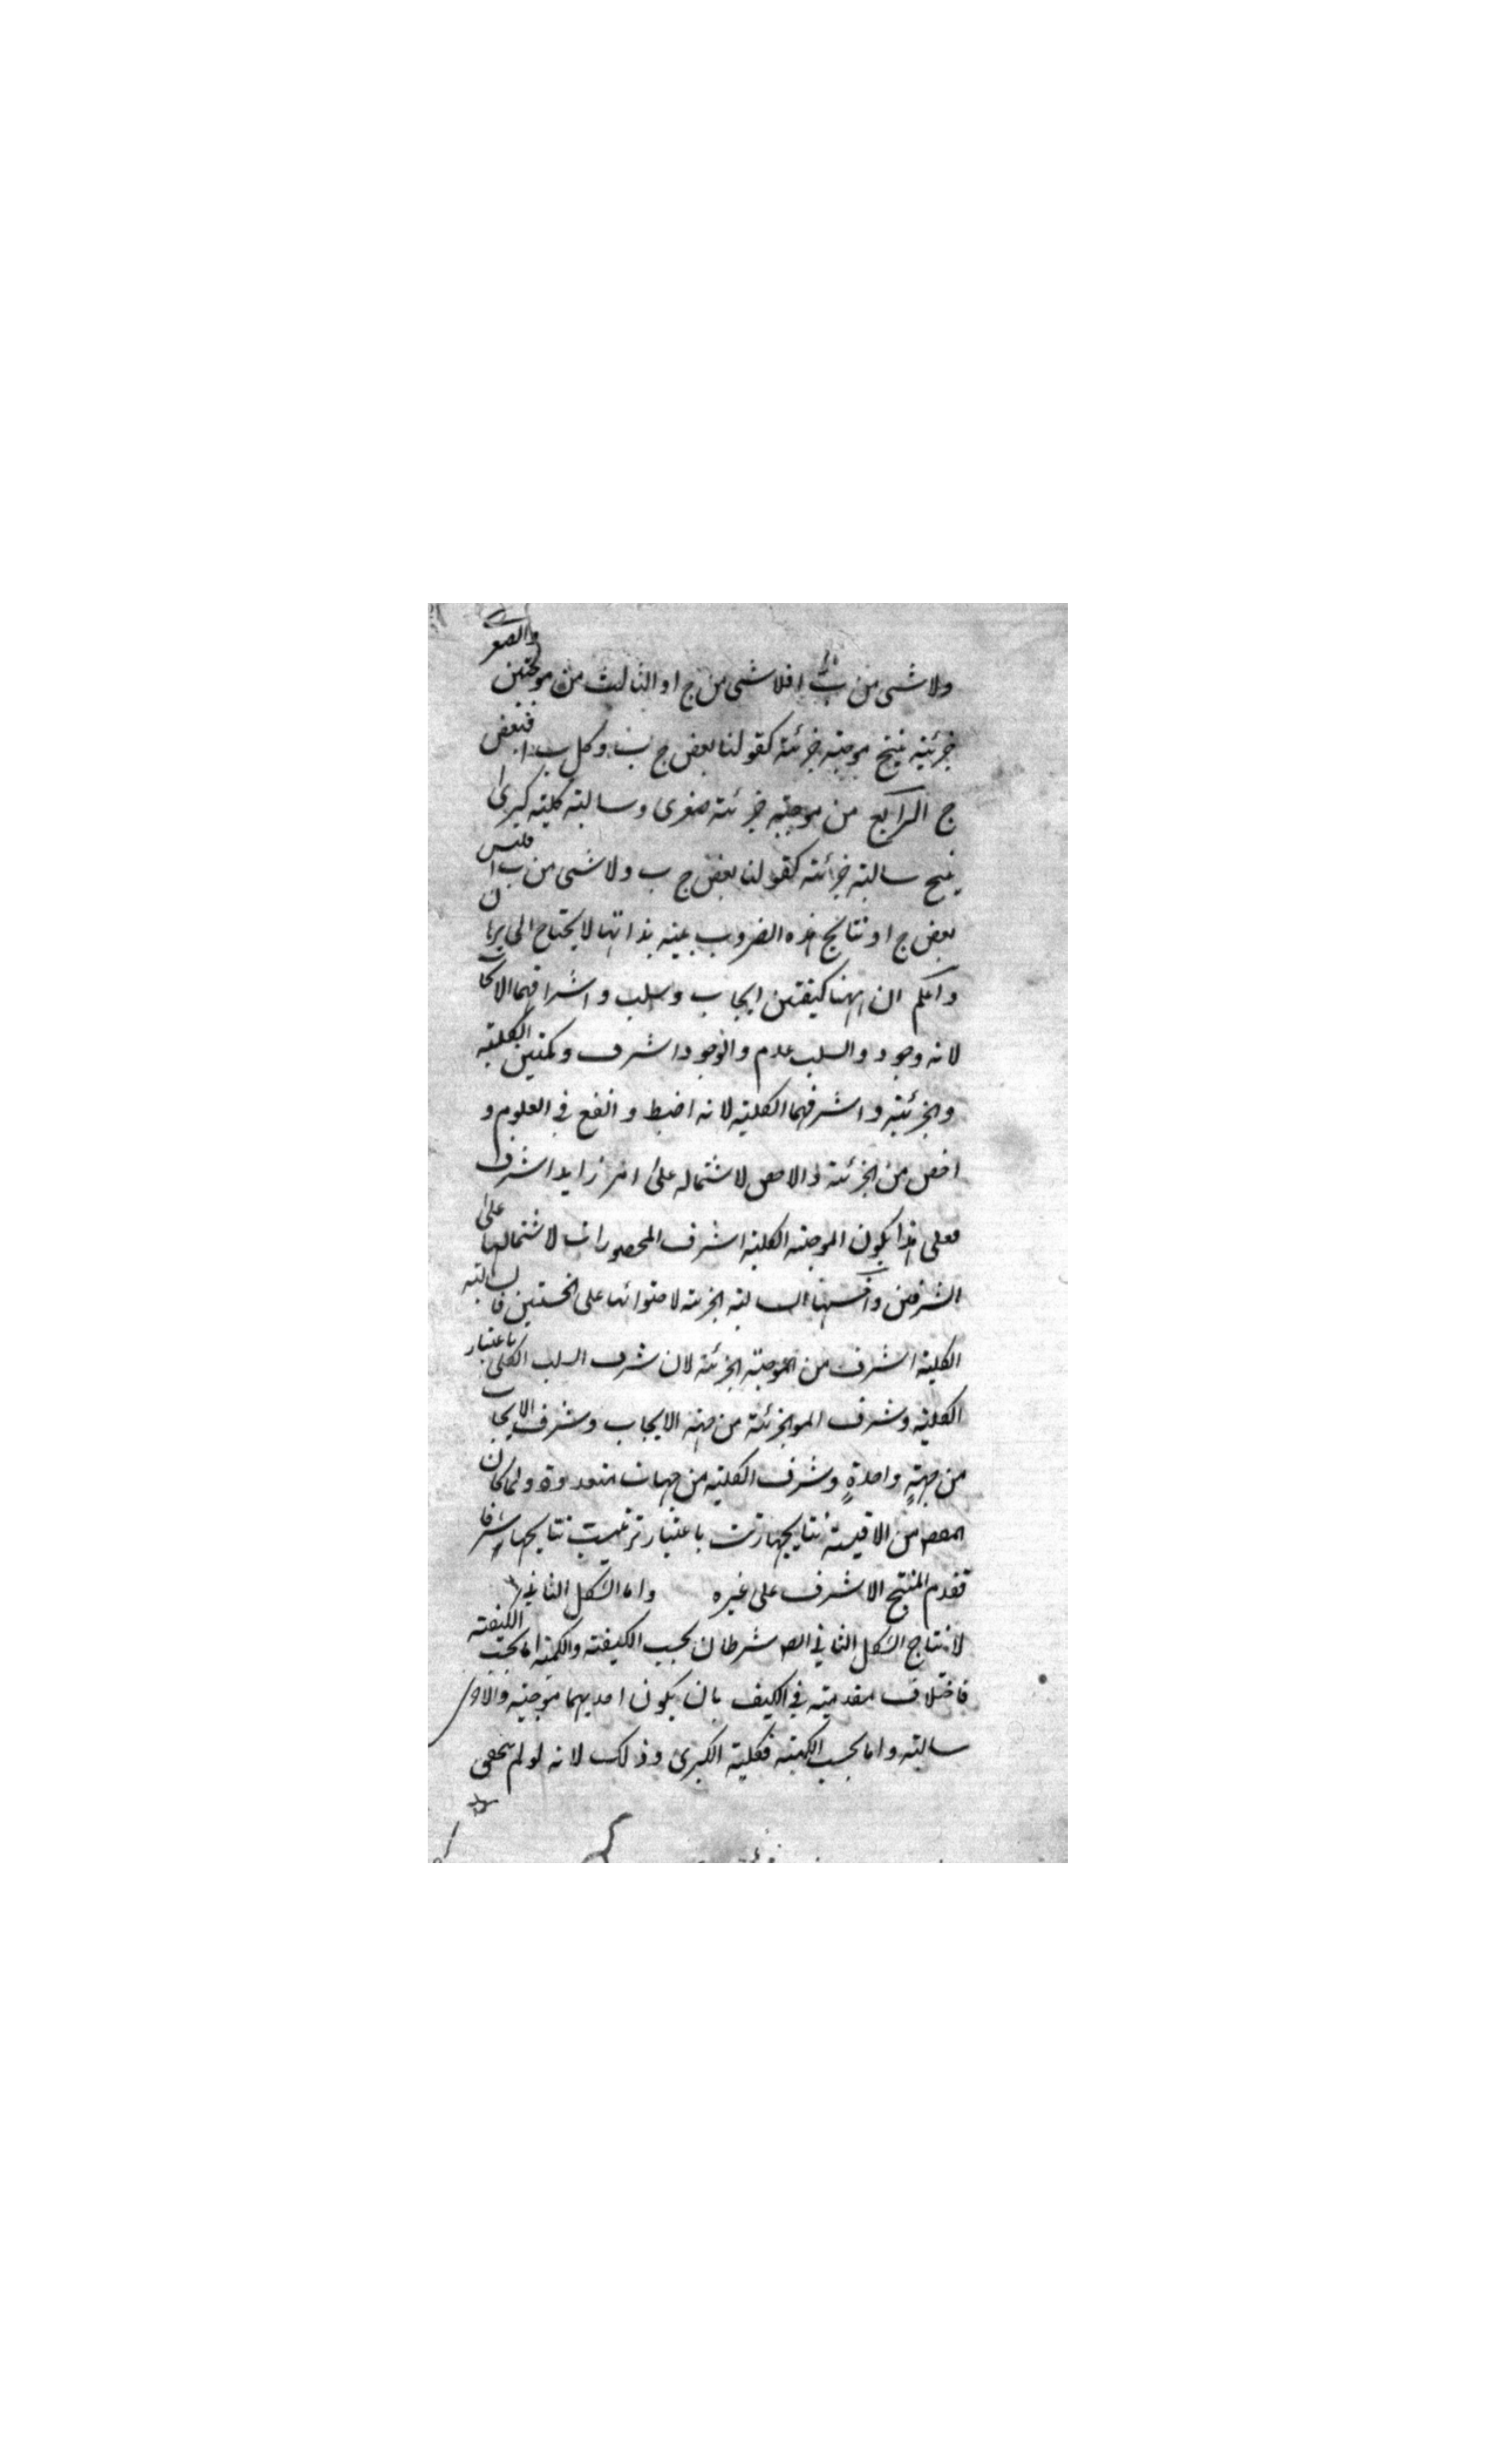 ولا شئ من ب ا فلا شئ من ج ا والثالث من موجبتين والصغرى
جزئية ينتج موجبة جزئية كقولنا بعض ج ب وكل ب ا فبعض
ج ا الرابع من موجبة جزئية صغرى وسالبة كلية كبرى
ينتج سالبة جزئية كقولنا بعض ج ب ولا شئ من ب ا فليس
بعض ج ا ونتائج هذه الضروب بينة بذاتها لا يحتاج الى برهان
واعلم ان ههنا كيفتين ايجاب وسلب واشرافهما الايجاب
لانه وجود والسلب عدم والوجود اشرف وكمتين الكلية
والجزئية واشرفهما الكلية لانه اضبط وانفع في العلوم و
اخص من الجزئية والاخص لاشتماله على امر زايد اشرف
فعلى هذا يكون الموجبة الكلية اشرف المحصورات لاشتمالها على
الشرفين واخسها السالبة الجزئية لاحتوائها على الخستين فالسالبة
الكلية اشرف من الموجبة الجزئية لان شرف السلب الكلى باعتبار
الكلية وشرف الموالجزئية من جهة الايجاب وشرف الايجاب
من جهةٍ واحدةٍ وشرف الكلية من جهات متعددة ولما كان
المقص من الاقيسة نتايجها رتبت باعتبار ترتيب نتايجها شرفا
فقدم المنتج الاشرف على غيره واما الشكل الثاني
لانتاج الشكل الثاني ايض شرطان بحسب الكيفية والكمية اما بحسب الكيفية
فاختلاف مقدمتيه في الكيف بان يكون احديهما موجبة والاخرى
سالبة واما بحسب الكمية فكلية الكبرى وذلك لانه لو لم يتحقق